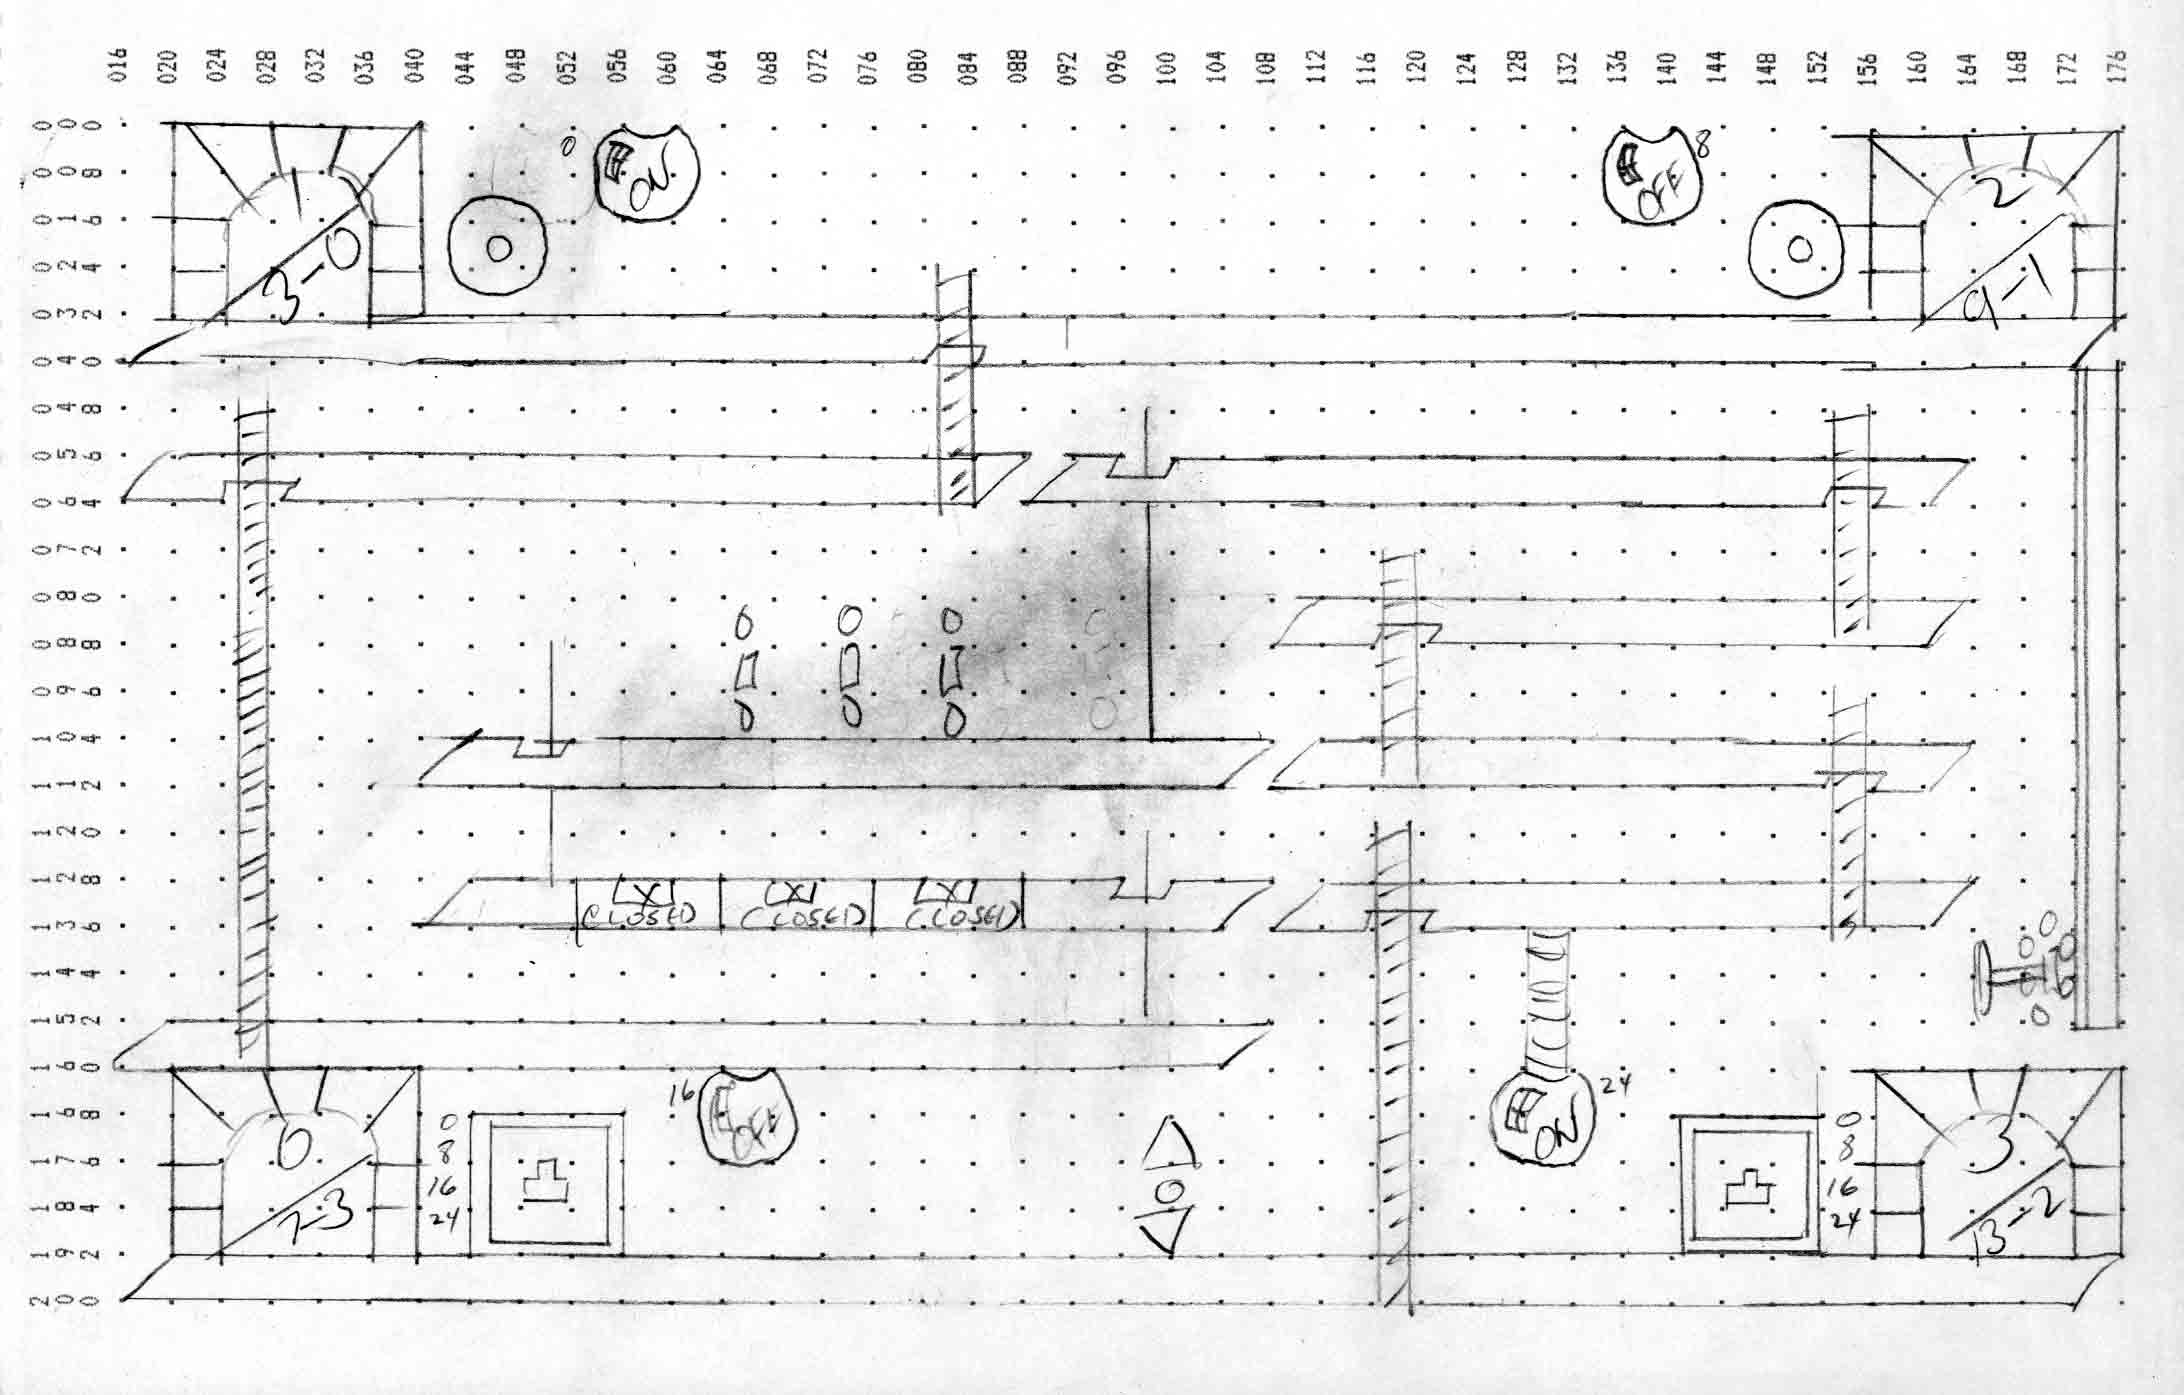 016 020 024 028 032 036 040 044 048 052 056 060 064 068 072 076 080 084 088 092 096 100 104 108 112 116 120 124 128 132 136 140 144 148 152 156 160 164 168 172 176
000
008
016
024
032
040
048
056
064
072
080
088
096
104
112
120
128
136
144
152
160
168
176
184
192
200
3-0
0
ON
OFF
8
2
9-1
CLOSED
CLOSED
CLOSED
0
7-3
0
8
16
24
16
OFF
ON
24
0
8
16
24
3
13-2